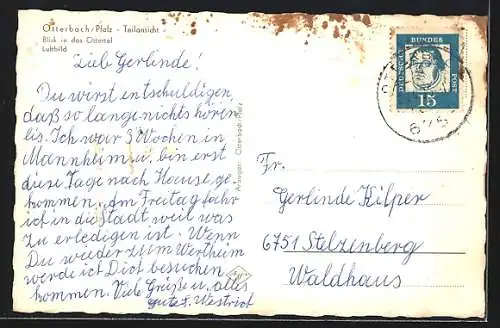 Otterbach/Pfalz - Teilansicht -
Blick in das Ostertal
Luftbild
Lieb Gerlinde!
Du wirst entschuldigen,
daß so lange nichts hören
lis. Ich war 3 Wochen in
Mannheim u. bin erst
diese Tage nach Hause ge-
kommen. Am Freitag fahr
ich in die Stadt weil was
zu erledigen ist. Wenn
Du wieder zum Wertheim
werde ich Dich besuchen
kommen. Viele Grüße u. alles
gute
Fr.
Gerlinde Kilper
6751 Stelzenberg
Waldhaus
DEUTSCHE
BUNDES
POST
15
675
Otterbach-Pfalz